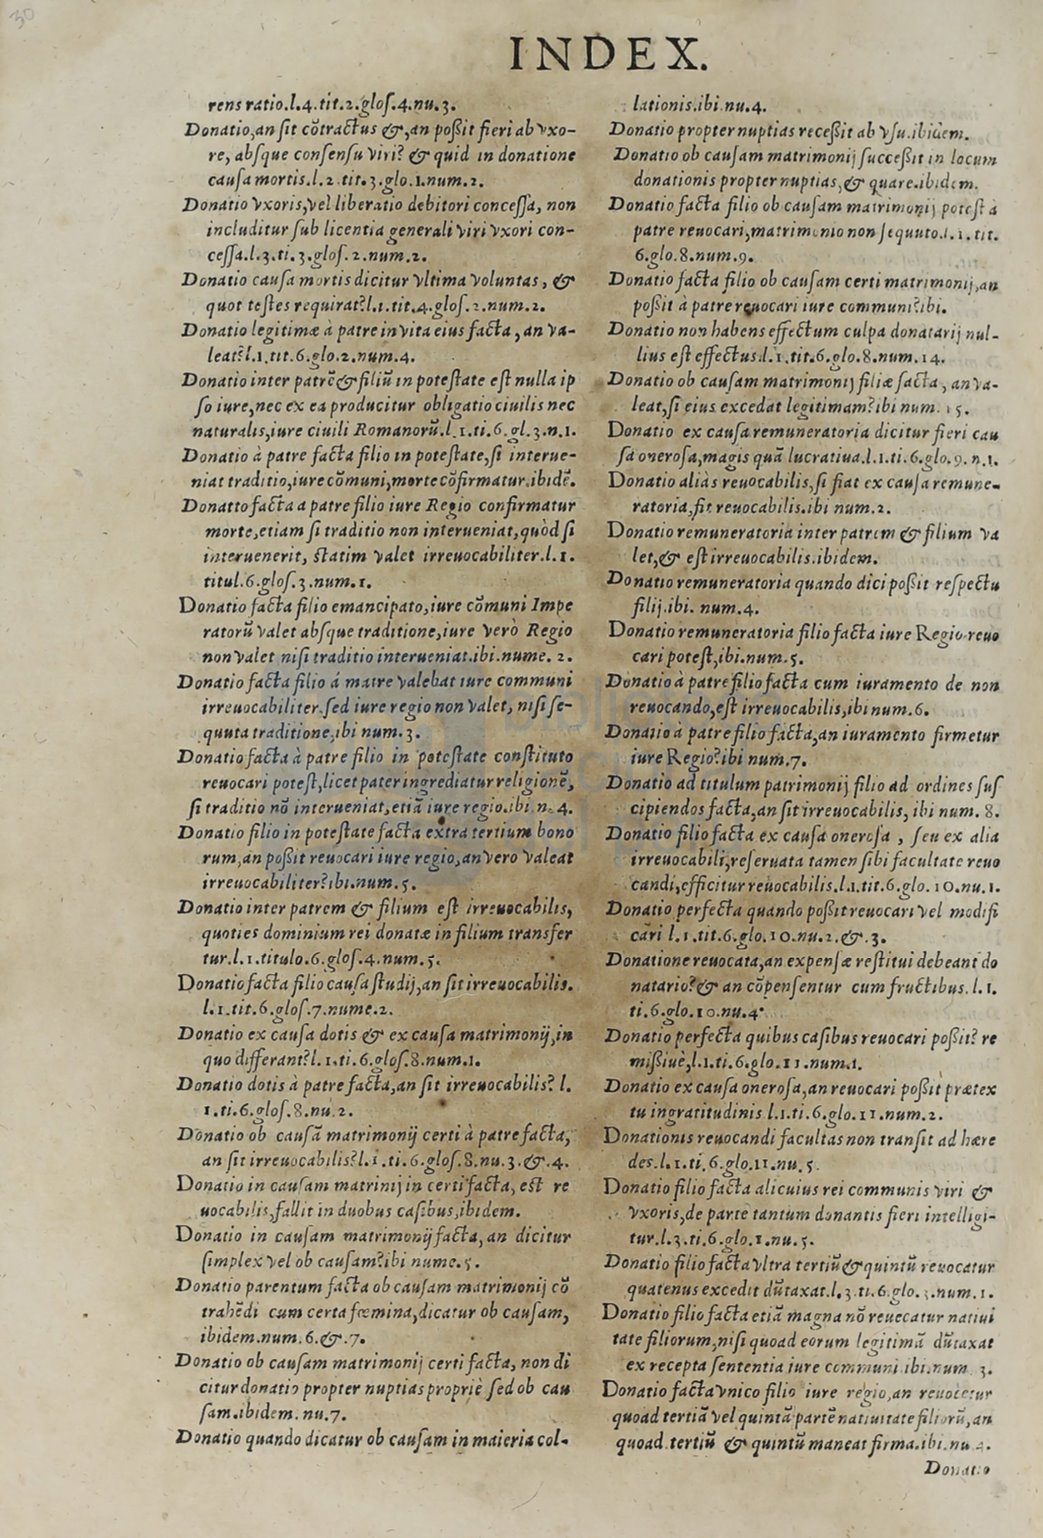 30
INDEX.
rens ratio.l.4.tit.2.gloſ.4.nu.3.
Donatio,an ſit cõtractus &,an poßit fieri ab vxo-
re, abſque conſenſu viri? & quid in donatione
cauſa mortis.l.2.tit.3.glo.1.num.2.
Donatio vxoris,vel liberatio debitori conceſſa, non
includitur ſub licentia generali viri vxori con-
ceſſa.l.3.ti.3.gloſ.2.num.2.
Donatio cauſa mortis dicitur vltima voluntas, &
quot teſtes requirat?l.1.tit.4.gloſ.2.num.2.
Donatio legitimæ à patre in vita eius facta, an va-
leat?l.1.tit.6.glo.2.num.4.
Donatio inter patrẽ & filiũ in poteſtate eſt nulla ip
ſo iure,nec ex ea producitur obligatio ciuilis nec
naturalis,iure ciuili Romanorũ.l.1.ti.6.gl.3.n.1.
Donatio à patre facta filio in poteſtate,ſi interue-
niat traditio,iure cõmuni,morte cõfirmatur.ibidẽ.
Donatto facta a patre filio iure Regio confirmatur
morte,etiam ſi traditio non interueniat,quòd ſi
interuenerit, ſtatim valet irreuocabiliter.l.1.
titul.6.gloſ.3.num.1.
Donatio facta filio emancipato,iure cõmuni Impe
ratorũ valet abſque traditione,iure verò Regio
non valet niſi traditio interueniat.ibi.nume. 2.
Donatio facta filio á matre valebat iure communi
irreuocabiliter.ſed iure regio non valet, niſi ſe-
quuta traditione,ibi num.3.
Donatio facta à patre filio in poteſtate conſtituto
reuocari poteſt,licet pater ingrediatur religionẽ,
ſi traditio nõ interueniat,etiã iure regio.ibi n. 4.
Donatio filio in poteſtate facta extra tertium bono
rum,an poßit reuocari iure regio,an vero valeat
irreuocabiliter?ibi.num.5.
Donatio inter patrem & filium eſt irreuocabilis,
quoties dominium rei donatæ in filium transfer
tur.l.1.titulo.6.gloſ.4.num.5.
Donatio facta filio cauſa ſtudij,an ſit irreuocabilis.
l.1.tit.6.gloſ.7.nume.2.
Donatio ex cauſa dotis & ex cauſa matrimonij,in
quo differant?l.1.ti.6.gloſ.8.num.1.
Donatio dotis à patre facta,an ſit irreuocabilis? l.
1.ti.6.gloſ.8.nu.2.
Donatio ob cauſã matrimonij certi à patre facta,
an ſit irreuocabilis?l.1.ti.6.gloſ.8.nu.3.&.4.
Donatio in cauſam matrinij in certi facta, eſt re
uocabilis,fallit in duobus caſibus,ibidem.
Donatio in cauſam matrimonij facta,an dicitur
ſimplex vel ob cauſam?ibi nume.5.
Donatio parentum facta ob cauſam matrimonij cõ
trahẽdi cum certa fœmina,dicatur ob cauſam,
ibidem.num.6.&.7.
Donatio ob cauſam matrimonij certi facta, non di
citur donatio propter nuptias propriè ſed ob cau
ſam.ibidem.nu.7.
Donatio quando dicatur ob cauſam in maieria col-
lationis.ibi.nu.4.
Donatio propter nuptias receßit ab vſu.ibidem.
Donatio ob cauſam matrimonij ſucceßit in locum
donationis propter nuptias,& quare.ibidem.
Donatio facta filio ob cauſam matrimonij poteſt à
patre reuocari,matrimonio non ſequuto.l.1.tit.
6.glo.8.num.9.
Donatio facta filio ob cauſam certi matrimonij,an
poßit à patre reuocari iure communi?ibi.
Donatio non habens effectum culpa donatarij nul-
lius eſt effectus.l.1.tit.6.glo.8.num.14.
Donatio ob cauſam matrimonij filiæ facta, an va-
leat,ſi eius excedat legitimam?ibi num. 15.
Donatio ex cauſa remuneratoria dicitur fieri cau
ſa oneroſa,magis quã lucratiua.l.1.ti.6.glo.9.n.1.
Donatio aliàs reuocabilis,ſi fiat ex cauſa remune-
ratoria,fit reuocabilis.ibi num.2.
Donatio remuneratoria inter patrem & filium va
let,& eſt irreuocabilis.ibidem.
Donatio remuneratoria quando dici poßit reſpectu
filij.ibi. num.4.
Donatio remuneratoria filio facta iure Regio reuo
cari poteſt,ibi.num.5.
Donatio à patre filio facta cum iuramento de non
reuocando,eſt irreuocabilis,ibi num.6.
Donatio à patre filio facta,an iuramento firmetur
iure Regio?ibi num.7.
Donatio ad titulum patrimonij filio ad ordines ſuſ
cipiendos facta,an ſit irreuocabilis, ibi num. 8.
Donatio filio facta ex cauſa oneroſa , ſeu ex alia
irreuocabili,reſeruata tamen ſibi facultate reuo
candi,efficitur reuocabilis.l.1.tit.6.glo.10.nu.1.
Donatio perfecta quando poßit reuocari vel modifi
cari l.1.tit.6.glo.10.nu.2.&.3.
Donatione reuocata,an expenſæ reſtitui debeant do
natario?& an cõpenſentur cum fructibus.l.1.
ti.6.glo.10.nu.4.
Donatio perfecta quibus caſibus reuocari poßit? re
mißiuè,l.1.ti.6.glo.11.num.1.
Donatio ex cauſa oneroſa,an reuocari poßit prætex
tu ingratitudinis l.1.ti.6.glo.11.num.2.
Donationis reuocandi facultas non tranſit ad hære
des.l.1.ti.6.glo.11.nu.5.
Donatio filio facta alicuius rei communis viri &
vxoris,de parte tantum donantis fieri intelligi-
tur.l.3.ti.6.glo.1.nu.5.
Donatio filio facta vltra tertiũ & quintũ reuocatur
quatenus excedit dũtaxat.l.3.ti.6.glo.3.num.1.
Donatio filio facta etiã magna nõ reuecatur natiui
tate filiorum,niſi quoad eorum legitimã dũtaxat
ex recepta ſententia iure communi.ibi.num 3.
Donatio facta vnico filio iure regio,an reuocetur
quoad tertiã vel quintã partẽ natiuitate filiorũ,an
quoad tertiũ & quintũ maneat firma.ibi.nu 4.
Donatio